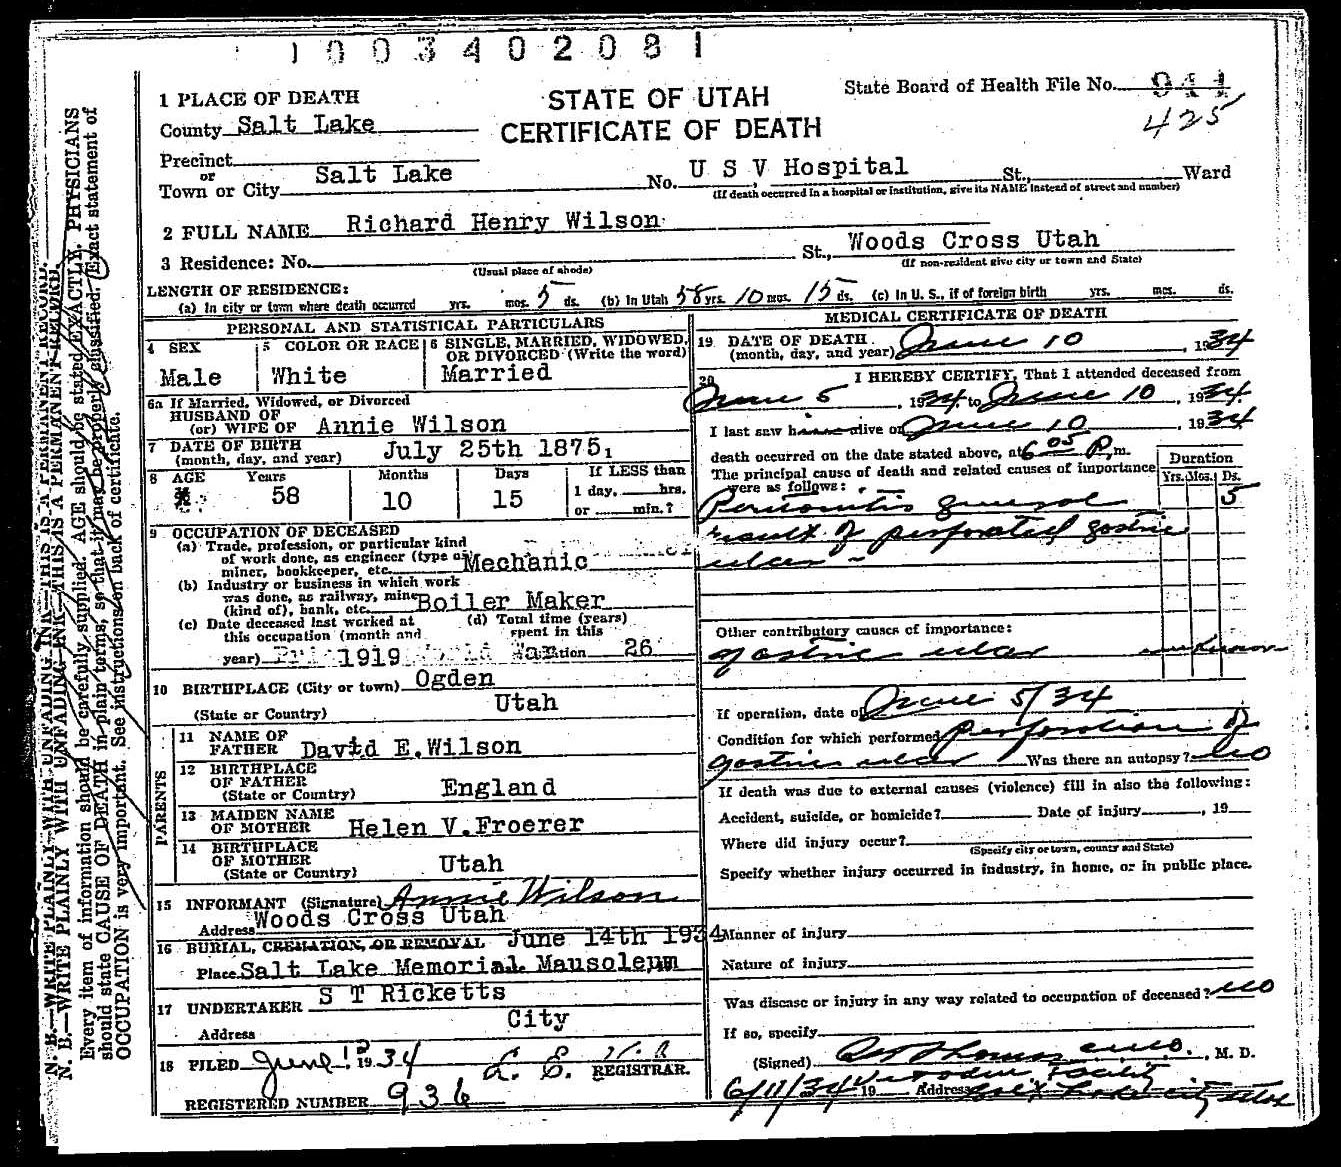 1003402081
STATE OF UTAH
CERTIFICATE OF DEATH
State Board of Health File No. 941
425
1 PLACE OF DEATH
County Salt Lake
Precinct
or
Town or City Salt Lake No. U S V Hospital St., Ward
(If death occurred in a hospital or institution, give its NAME instead of street and number)
2 FULL NAME Richard Henry Wilson
3 Residence: No. St., Woods Cross Utah
(Usual place of abode) (If non-resident give city or town and State)
LENGTH OF RESIDENCE:
(a) In city or town where death occurred yrs. mos. 5 ds. (b) In Utah 58 yrs. 10 mos. 15 ds. (c) In U. S., if of foreign birth yrs. mos. ds.
PERSONAL AND STATISTICAL PARTICULARS
4 SEX Male
5 COLOR OR RACE White
6 SINGLE, MARRIED, WIDOWED, OR DIVORCED (Write the word) Married
6a If Married, Widowed, or Divorced
HUSBAND OF
(or) WIFE OF Annie Wilson
7 DATE OF BIRTH
(month, day, and year) July 25th 1875,
8 AGE Years 58 Months 10 Days 15 If LESS than
1 day, hrs.
or min.?
9 OCCUPATION OF DECEASED
(a) Trade, profession, or particular kind
of work done, as engineer (type of
miner, bookkeeper, etc. Mechanic
(b) Industry or business in which work
was done, as railway, mine
(kind of), bank, etc. Boiler Maker
(c) Date deceased last worked at
this occupation (month and
year) 1919
(d) Total time (years)
spent in this
26
10 BIRTHPLACE (City or town) Ogden
(State or Country) Utah
PARENTS
11 NAME OF
FATHER David E. Wilson
12 BIRTHPLACE
OF FATHER
(State or Country) England
13 MAIDEN NAME
OF MOTHER Helen V. Froerer
14 BIRTHPLACE
OF MOTHER
(State or Country) Utah
15 INFORMANT (Signature) Annie Wilson
Address Woods Cross Utah
16 BURIAL, CREMATION, OR REMOVAL June 14th 1934
Place Salt Lake Memorial Mausoleum
17 UNDERTAKER S T Ricketts
Address City
18 FILED June 1934
REGISTRAR.
REGISTERED NUMBER 936
MEDICAL CERTIFICATE OF DEATH
19 DATE OF DEATH
(month, day, and year) June 10, 1934
20 I HEREBY CERTIFY, That I attended deceased from
June 5, 1934 to June 10, 1934
I last saw him alive on June 10 1934
death occurred on the date stated above, at 6 05 P. m.
The principal cause of death and related causes of importance
were as follows:
Duration
Yrs. Mos. Ds.
Peritonitis general 5
result of perforated gastric
ulcer
Other contributory causes of importance:
gastric ulcer unknown
If operation, date of June 5/34
Condition for which performed perforation of
gastric ulcer Was there an autopsy? no
If death was due to external causes (violence) fill in also the following:
Accident, suicide, or homicide? Date of injury , 19
Where did injury occur?
(Specify city or town, county and State)
Specify whether injury occurred in industry, in home, or in public place.
Manner of injury
Nature of injury
Was disease or injury in any way related to occupation of deceased? no
If so, specify
(Signed) , M. D.
6/11/34 19 Address
N. B.—WRITE PLAINLY WITH UNFADING INK—THIS IS A PERMANENT RECORD.
N. B.—WRITE PLAINLY WITH UNFADING INK—THIS IS A PERMANENT RECORD.
Every item of information should be carefully supplied. AGE should be stated EXACTLY. PHYSICIANS
should state CAUSE OF DEATH in plain terms, so that it may be properly classified. Exact statement of
OCCUPATION is very important. See instructions on back of certificate.